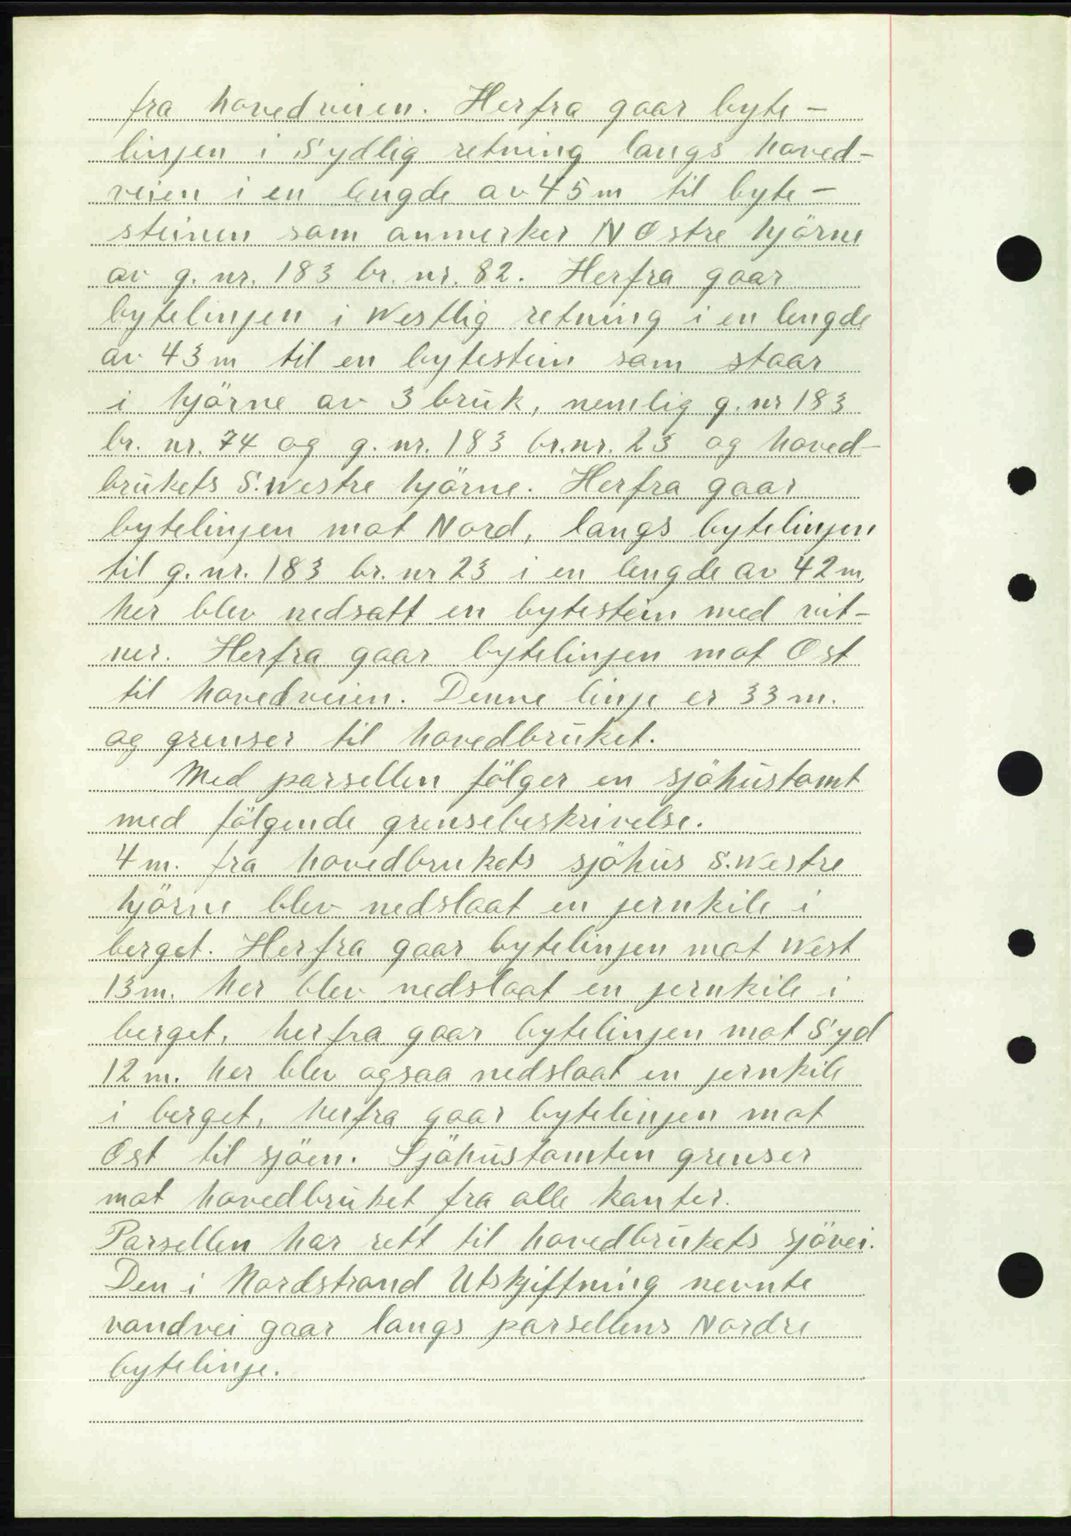 fra hovedveien. Herfra gaar byte-
linjen i Sydlig retning langs hoved-
veien i en lengde av 45 m til byte-
steinen som anmerker N Østre hjörne
av g. nr. 183 br. nr. 82. Herfra gaar
bytelinjen i Westlig retning i en lengde
av 43 m til en bytestein som staar
i hjörne av 3 bruk, nemlig g. nr 183
br. nr. 74 og g. nr. 183 br. nr. 23 og hoved-
brukets S. westre hjörne. Herfra gaar
bytelinjen mot Nord, langs bytelinjen
til g. nr. 183 br. nr 23 i en lengde av 42 m,
her blev nedsatt en bytestein med vit-
ner. Herfra gaar bytelinjen mot Øst
til hovedveien. Denne linje er 33 m.
og grenser til hovedbruket.
Med parsellen fölger en sjöhustomt
med fölgende grensebeskrivelse.
4 m. fra hovedbrukets sjöhus S. westre
hjörne blev nedslaat en jernkile i
berget. Herfra gaar bytelinjen mot West
13 m. her blev nedslaat en jernkile i
berget, herfra gaar bytelinjen mot Syd
12 m. her blev ogsaa nedslaat en jernkile
i berget, herfra gaar bytelinjen mot
Øst til sjöen. Sjöhustomten grenser
mot hovedbruket fra alle kanter.
Parsellen har rett til hovedbrukets sjövei.
Den i Nordstrand Utskjiftning nevnte
vandvei gaar langs parsellens Nordre
bytelinje.